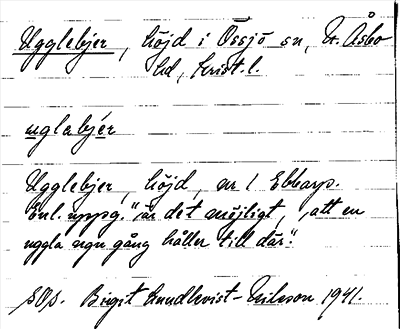 Ugglebjer, höjd i Össjö sn, N. Åsbo
hd, Krist. l.
uglabjér
Ugglebjer, höjd, nr 1 Ebbarp.
Enl. uppg. "är det möjligt, att en
uggla ngn gång håller till där".
SOs. Birgit Lundkvist-Nilsson 1941.